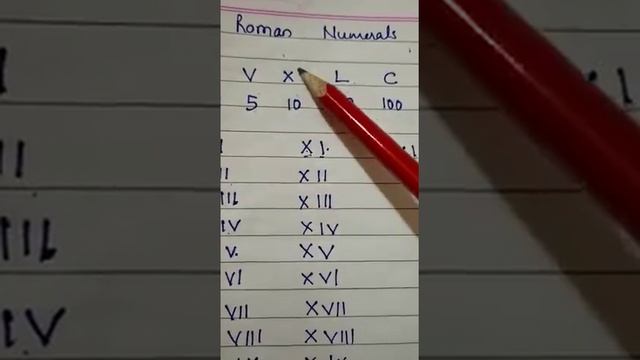 Roman Numerals
V X L C
5 10 100
I XI.
II XII
III XIII
IV XIV
V. XV
VI XVI
VII XVII
VIII XVIII